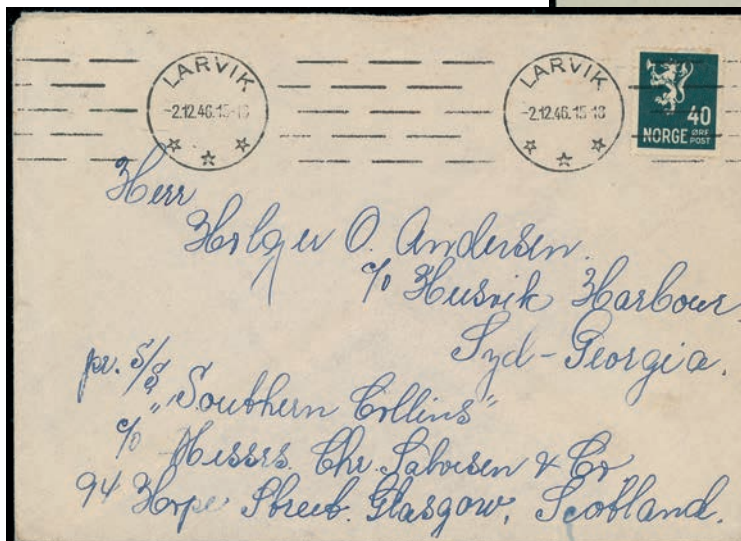 LARVIK
-2.12.46.15-18
LARVIK
-2.12.46.15-18
40
NORGE ØRE POST
Herr
Holger O. Andersen.
c/o Husvik Harbour,
Syd-Georgia.
pr. S/S
"Southern Collins"
c/o Messrs. Chr. Salvesen & Co,
94 Hope Street. Glasgow, Scotland.